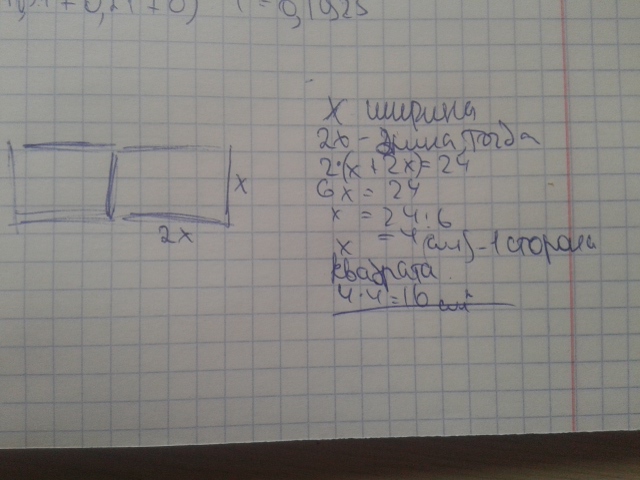 x
2x
X ширина
2x - длина, тогда
2·(x + 2x) = 24
6x = 24
x = 24:6
x = 4 (см) - 1 сторона
квадрата.
4·4 = 16 см²